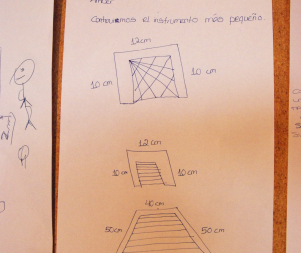 Construiremos el instrumento más pequeño.
12cm
10 cm
10 cm
12 cm
10 cm
10 cm
40 cm
50cm
50 cm